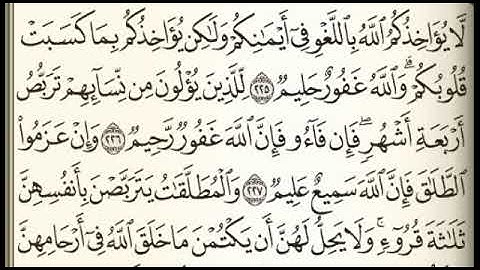 لَّا يُؤَاخِذُكُمُ ٱللَّهُ بِٱللَّغْوِ فِىٓ أَيْمَـٰنِكُمْ وَلَـٰكِن يُؤَاخِذُكُم بِمَا كَسَبَتْ
قُلُوبُكُمْ ۗ وَٱللَّهُ غَفُورٌ حَلِيمٌ ٢٢٥ لِّلَّذِينَ يُؤْلُونَ مِن نِّسَآئِهِمْ تَرَبُّصُ
أَرْبَعَةِ أَشْهُرٍ ۖ فَإِن فَآءُو فَإِنَّ ٱللَّهَ غَفُورٌ رَّحِيمٌ ٢٢٦ وَإِنْ عَزَمُوا۟
ٱلطَّلَـٰقَ فَإِنَّ ٱللَّهَ سَمِيعٌ عَلِيمٌ ٢٢٧ وَٱلْمُطَلَّقَـٰتُ يَتَرَبَّصْنَ بِأَنفُسِهِنَّ
ثَلَـٰثَةَ قُرُوٓءٍ ۚ وَلَا يَحِلُّ لَهُنَّ أَن يَكْتُمْنَ مَا خَلَقَ ٱللَّهُ فِىٓ أَرْحَامِهِنَّ